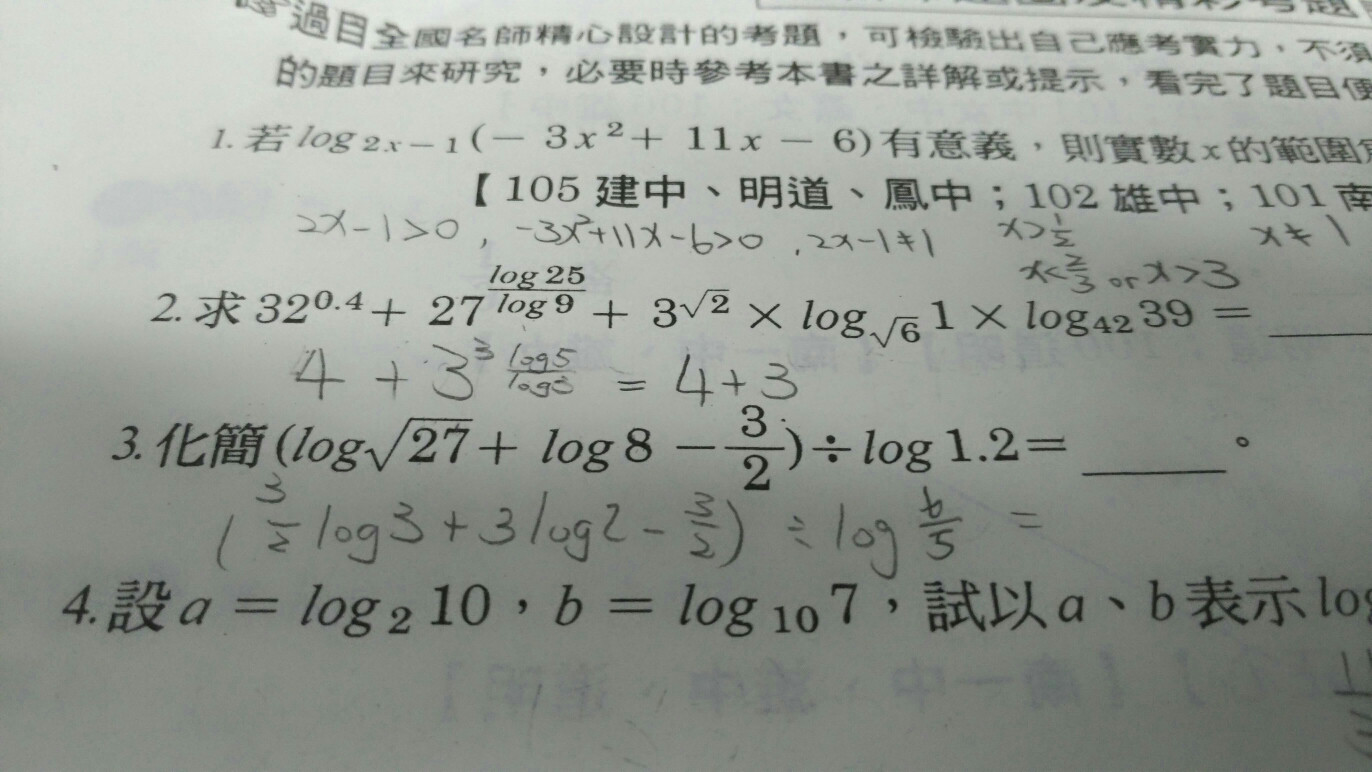 過目全國名師精心設計的考題，可檢驗出自己應考實力，不須
的題目來研究，必要時參考本書之詳解或提示，看完了題目便
1. 若 log₂ₓ₋₁(− 3x² + 11x − 6)有意義，則實數 x 的範圍
【105 建中、明道、鳳中；102 雄中；101 南
2x-1>0, -3x²+11x-6>0, 2x-1≠1 x>1/2 x≠1
x<2/3 or x>3
2. 求 32^0.4 + 27^(log 25/log 9) + 3^√2 × log_√6 1 × log₄₂ 39 =
4 + 3^(3 log5/log3) = 4+3
3. 化簡(log√27 + log 8 − 3/2) ÷ log 1.2 = ____。
(3/2 log3 + 3log2 - 3/2) ÷ log 6/5 =
4. 設 a = log₂ 10，b = log₁₀ 7，試以 a、b 表示 log